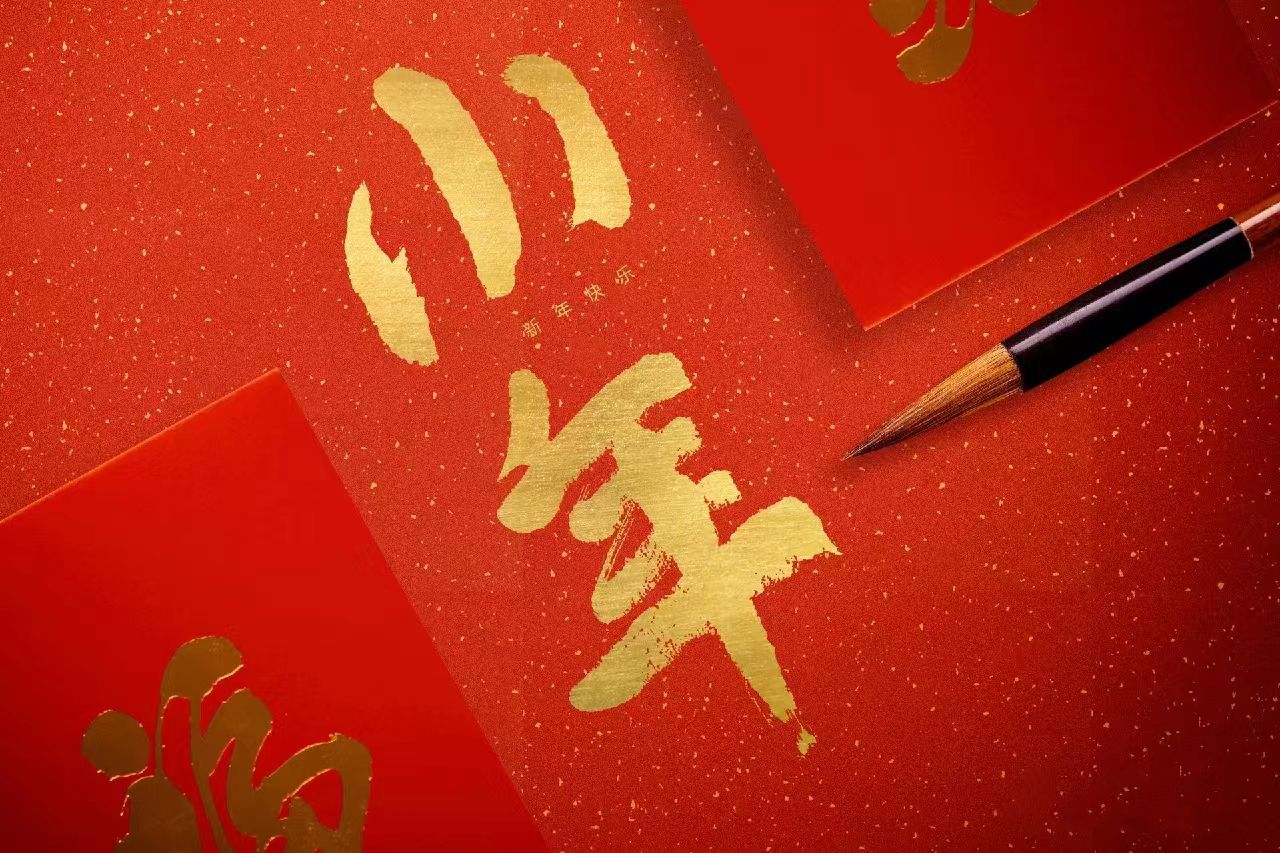 小年
新年快乐